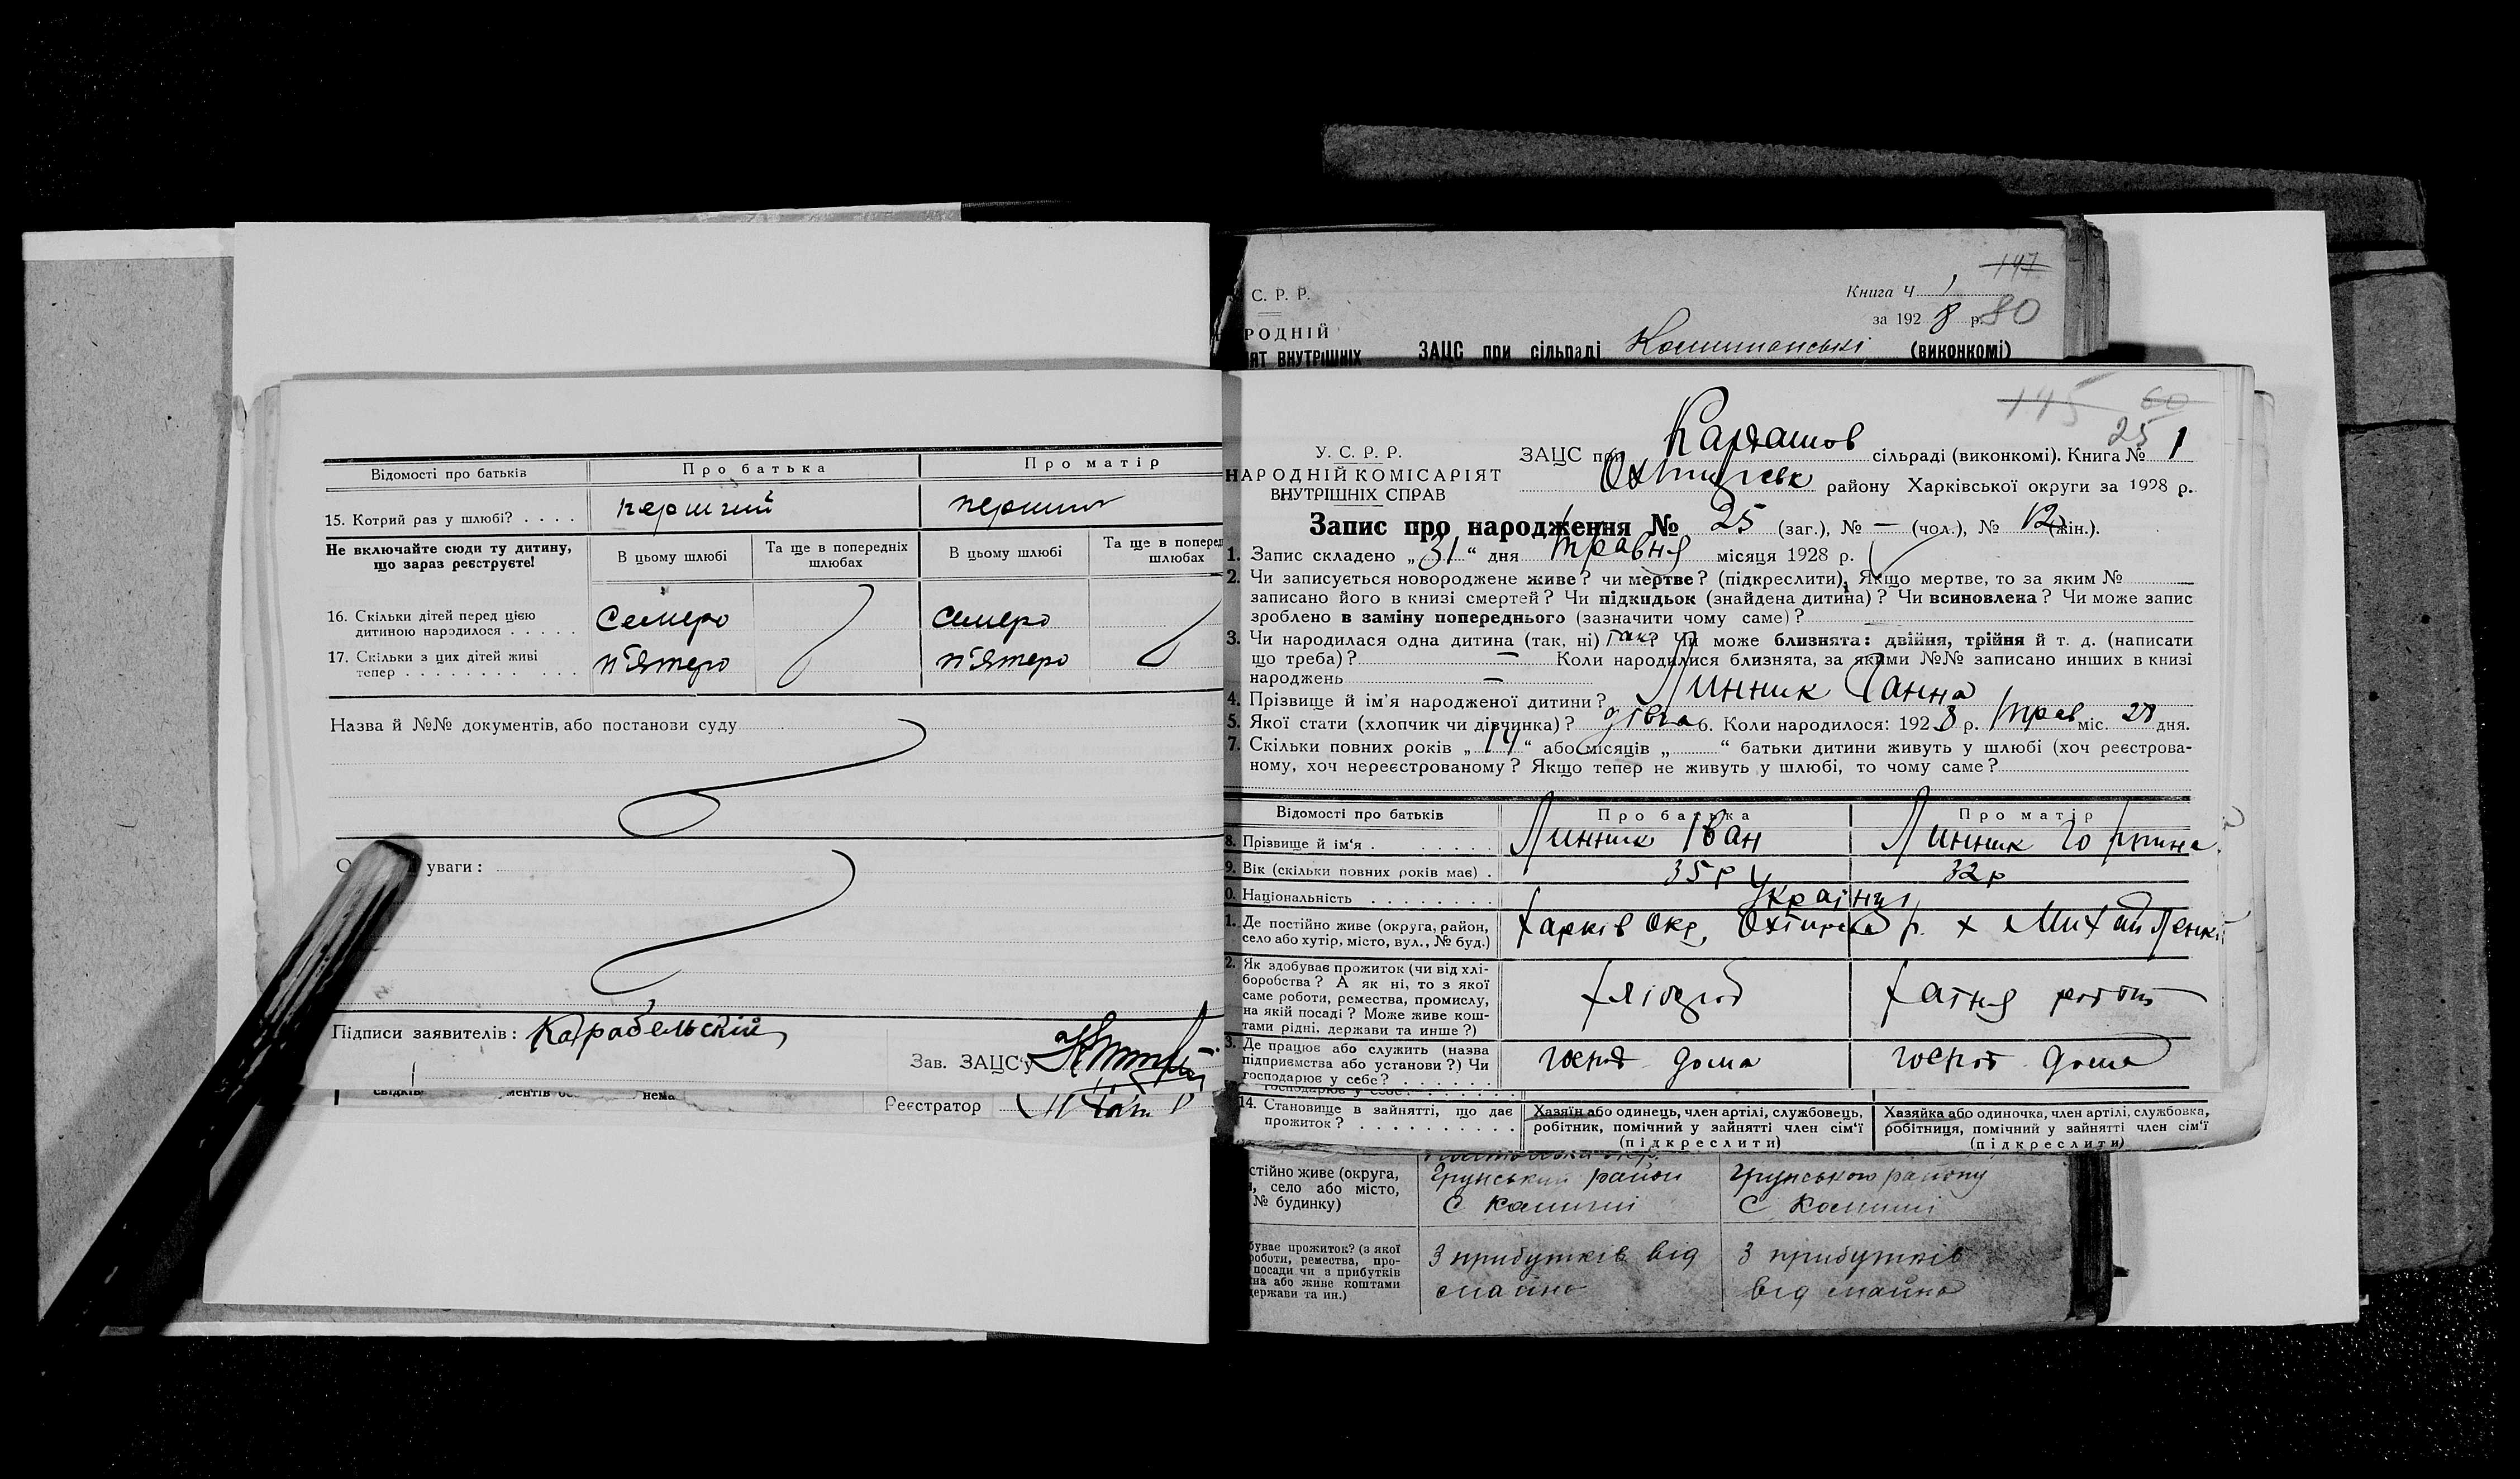 Відомості про батьків Про батька Про матір
15. Котрий раз у шлюбі? . . . . перший перший
Не включайте сюди ту дитину, що зараз реєструєте!
В цьому шлюбі
Та ще в попередніх шлюбах
В цьому шлюбі
Та ще в поперед
шлюбах
16. Скільки дітей перед цією
дитиною народилося . . . . . Семеро семеро
17. Скільки з цих дітей живі
тепер . . . . . . . . . . . п'ятеро п'ятеро
Назва й №№ документів, або постанови суду
уваги :
Підписи заявителів : Карабельский
Зав. ЗАЦС'у
нема
Реєстратор
147
С. Р. Р.
Книга Ч 1
за 1928 р. 80
РОДНІЙ
ЯТ ВНУТРІШНІХ ЗАЦС при сільраді (виконкомі)
145 60
25
У. С. Р. Р.
НАРОДНІЙ КОМІСАРІЯТ
ВНУТРІШНІХ СПРАВ
ЗАЦС при Кардашов сільраді (виконкомі). Книга № 1
Охтирськ району Харківської округи за 1928 р.
Запис про народження № 25 (заг.), № — (чол.), № 12 (жін.).
1. Запис складено „31“ дня травня місяця 1928 р.
2. Чи записується новороджене живе? чи мертве? (підкреслити), Якщо мертве, то за яким №
записано його в книзі смертей? Чи підкидьок (знайдена дитина)? Чи всиновлена? Чи може запис
зроблено в заміну попереднього (зазначити чому саме)?
3. Чи народилася одна дитина (так, ні) так? Чи може близнята: двійня, трійня й т. д. (написати
що треба)? — Коли народилися близнята, за якими №№ записано инших в книзі
народжень —
4. Прізвище й ім'я народженої дитини? Линник Ганна
5. Якої стати (хлопчик чи дівчинка)? дівча 6. Коли народилося: 1928 р. трав міс. 28 дня.
7. Скільки повних років „14“ або місяців „ “ батьки дитини живуть у шлюбі (хоч реєстрова-
ному, хоч нереєстрованому? Якщо тепер не живуть у шлюбі, то чому саме?
Відомості про батьків Про батька Про матір
8. Прізвище й ім'я . . . . . . Линник Іван Линник
9. Вік (скільки повних років має) . 35 р 32 р
0. Національність . . . . . . . . Українці
1. Де постійно живе (округа, район,
село або хутір, місто, вул., № буд.) Харків Окр, р. х
2. Як здобуває прожиток (чи від хлі-
боробства? А як ні, то з якої
саме роботи, ремества, промислу,
на якій посаді? Може живе кош-
тами рідні, держави та инше?)
хлібороб хатня
3. Де працює або служить (назва
підприємства або установи?) Чи
господарює у себе? . . . . . .
господ дома господ дома
14. Становище в зайнятті, що дає
прожиток? . . . . . . . . . .
Хазяїн або одинець, член артілі, службовець,
робітник, помічний у зайнятті член сім'ї
(підкреслити)
Хазяйка або одиночка, член артілі, службовка,
робітниця, помічний у зайнятті член сім'ї
(підкреслити)
стійно живе (округа,
, село або місто,
№ будинку)
Грунський район
С Камиші
Грунського району
С Камиші
буває прожиток? (з якої
роботи, ремества, про-
посади чи з прибутків
на або живе коштами
держави та ин.)
З прибутків від
майна
З прибутків
від майна